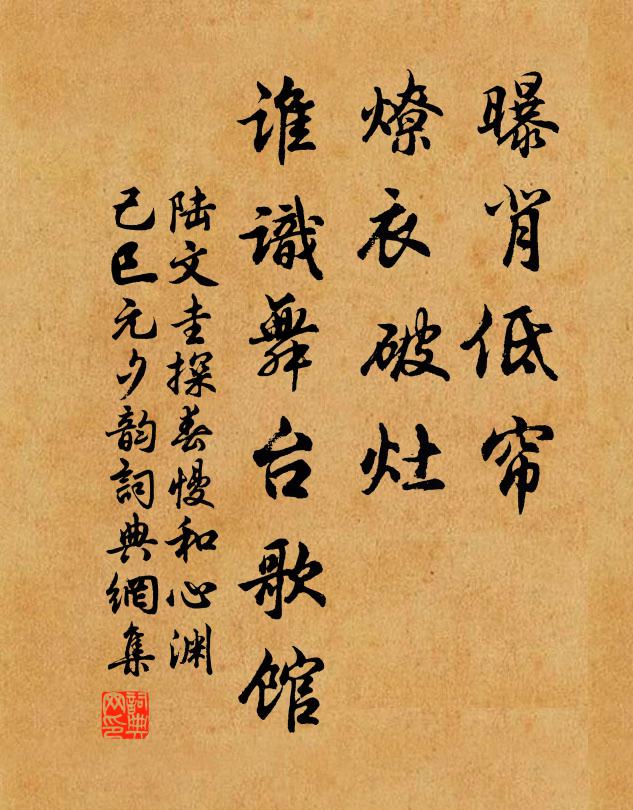 曝背低帘
燎衣破灶
谁識舞台歌馆
陆文圭探春慢和心渊
己巳元夕韵詞典網集
詞典网印